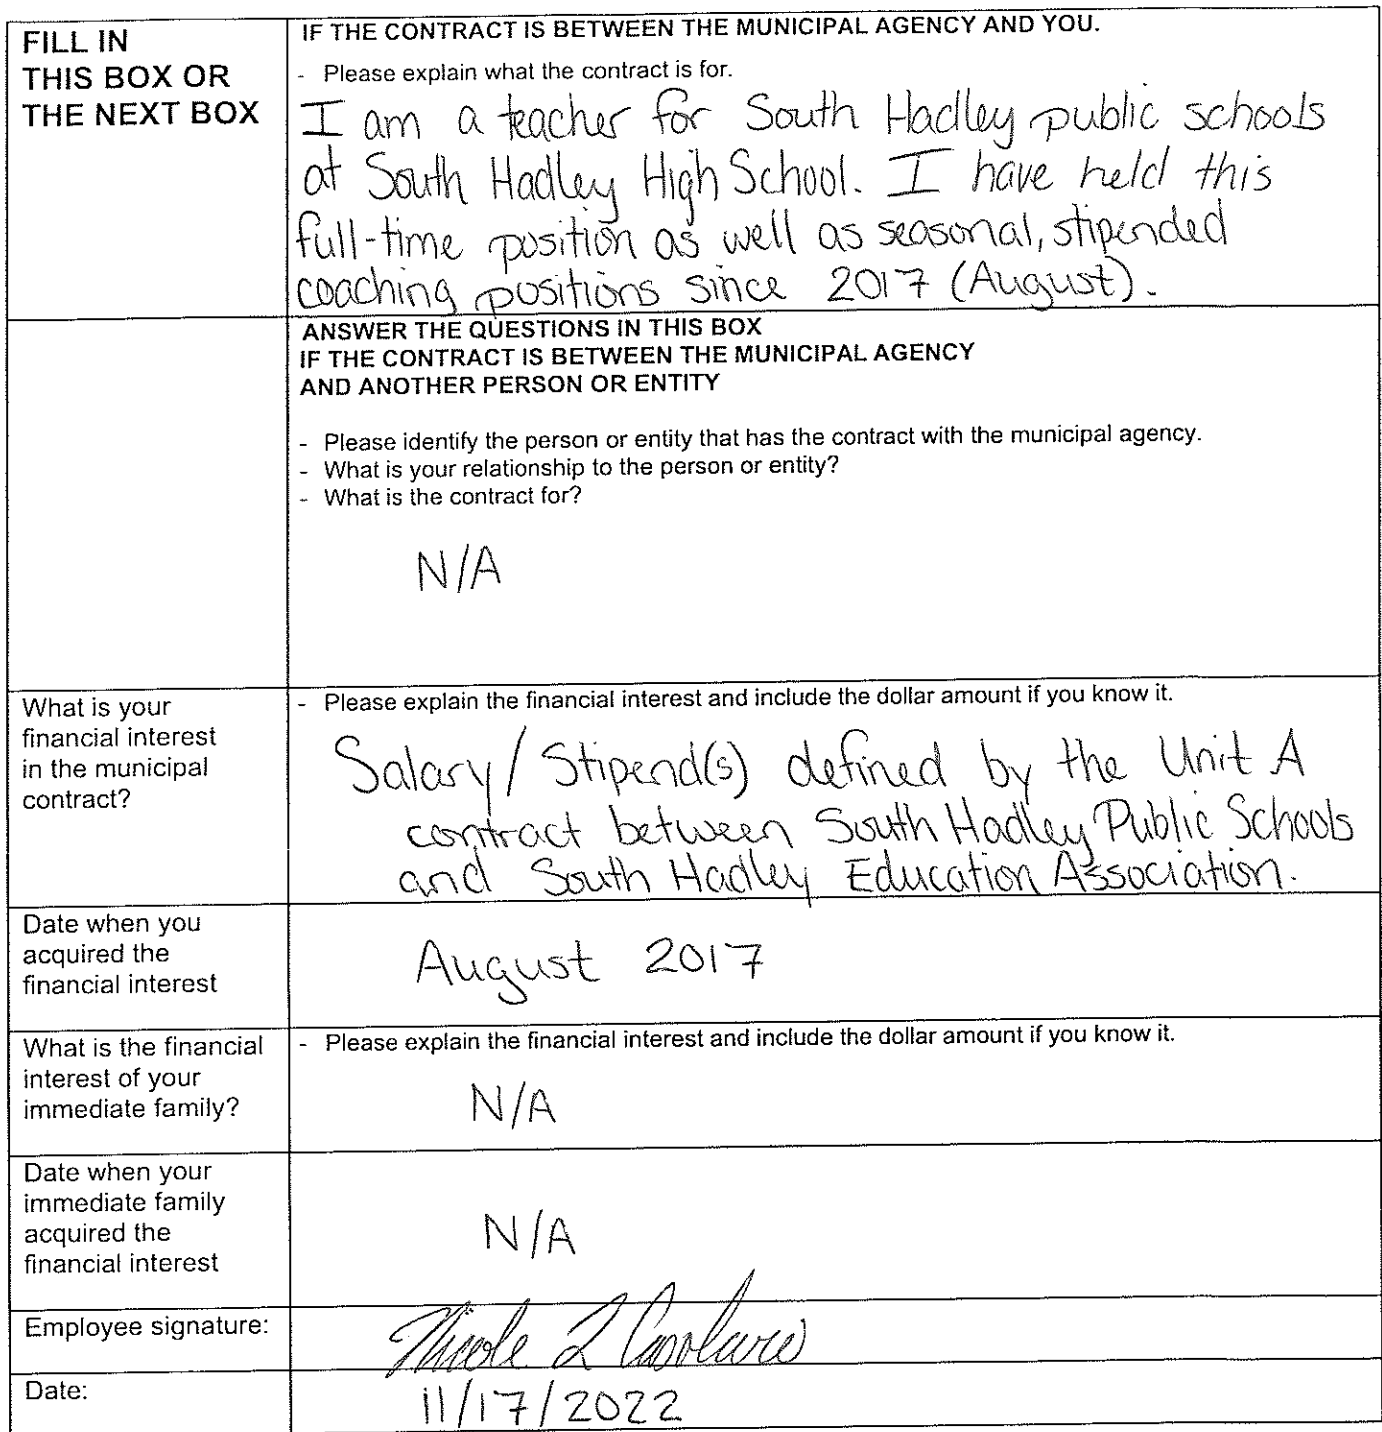 FILL IN
THIS BOX OR
THE NEXT BOX
IF THE CONTRACT IS BETWEEN THE MUNICIPAL AGENCY AND YOU.
- Please explain what the contract is for.
I am a teacher for South Hadley public schools
at South Hadley High School. I have held this
full-time position as well as seasonal, stipended
coaching positions since 2017 (August).
ANSWER THE QUESTIONS IN THIS BOX
IF THE CONTRACT IS BETWEEN THE MUNICIPAL AGENCY
AND ANOTHER PERSON OR ENTITY
- Please identify the person or entity that has the contract with the municipal agency.
- What is your relationship to the person or entity?
- What is the contract for?
N/A
What is your
financial interest
in the municipal
contract?
- Please explain the financial interest and include the dollar amount if you know it.
Salary/Stipend(s) defined by the Unit A
contract between South Hadley Public Schools
and South Hadley Education Association.
Date when you
acquired the
financial interest
August 2017
What is the financial
interest of your
immediate family?
- Please explain the financial interest and include the dollar amount if you know it.
N/A
Date when your
immediate family
acquired the
financial interest
N/A
Employee signature:
Nicole L Casolari
Date:
11/17/2022